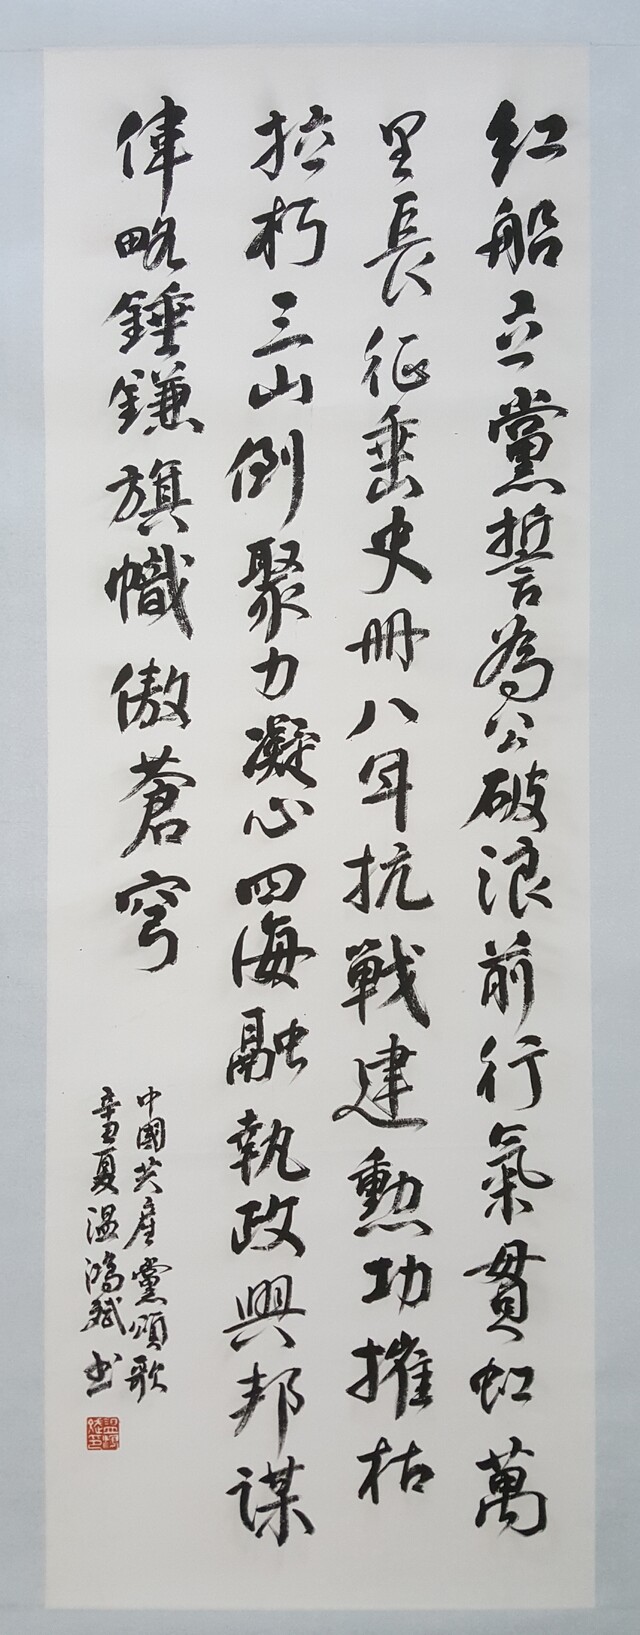 紅船立黨誓為公破浪前行氣貫虹萬
里長征垂史册八年抗戰建勳功摧枯
拉朽三山倒聚力凝心四海融執政興邦謀
偉略錘鐮旗幟傲蒼穹
中國共產黨頌歌
辛丑夏温鴻斌書